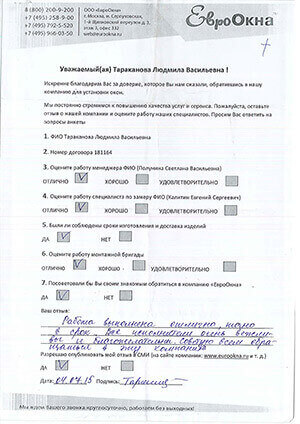 8 (800) 200-9-200
+7 (495) 258-9-00
+7 (495) 792-5-520
+7 (495) 966-03-50
ООО «ЕвроОкна»
г. Москва, м. Серпуховская,
ЕвроОкна
Уважаемый(ая) Тараканова Людмила Васильевна !
Искренне благодарим Вас за доверие, которое Вы нам оказали, обратившись в нашу
компанию для установки окон.
Мы постоянно стремимся к повышению качества услуг и сервиса. Пожалуйста, оставьте
отзыв о нашей компании и оцените работу наших специалистов. Просим Вас ответить на
вопросы анкеты
1. ФИО Тараканова Людмила Васильевна
2. Номер договора 181164
3. Оцените работу менеджера ФИО (Полумена Светлана Васильевна)
ОТЛИЧНО V ХОРОШО УДОВЛЕТВОРИТЕЛЬНО
4. Оцените работу специалиста по замеру ФИО (Калитин Евгений Сергеевич)
ОТЛИЧНО V ХОРОШО УДОВЛЕТВОРИТЕЛЬНО
5. Были ли соблюдены сроки изготовления и доставки изделий
ДА V НЕТ
6. Оцените работу монтажной бригады
ОТЛИЧНО V ХОРОШО УДОВЛЕТВОРИТЕЛЬНО
7. Посоветовали бы Вы своим знакомым обратиться в компанию «ЕвроОкна»
ДА V НЕТ
Ваш отзыв:
Работа выполнена отлично, точно
в срок. Все исполнители очень вежли-
вы и благожелательны. Советую всем обра-
щаться в эту компанию
Разрешаю опубликовать мой отзыв в СМИ (на сайте компании: www.eurookna.ru и т. д.)
ДА V НЕТ
Дата: 04.07.15 Подпись:
Мы ждем Вашего звонка круглосуточно, работаем без выходных!